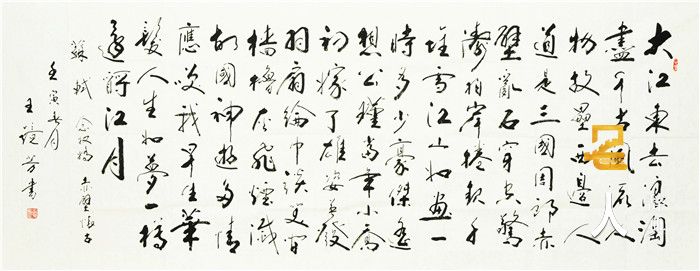 大江東去浪淘
盡千古風流人
物故壘西邊人
道是三國周郎赤
壁亂石穿空驚
濤拍岸捲起千
堆雪江山如畫一
時多少豪傑遙
想公瑾當年小喬
初嫁了雄姿英發
羽扇綸巾談笑間
檣櫓灰飛煙滅
故國神遊多情
應笑我早生華
髮人生如夢一樽
還酹江月
蘇軾 念奴嬌 赤壁懷古
壬寅春月
王 芳書